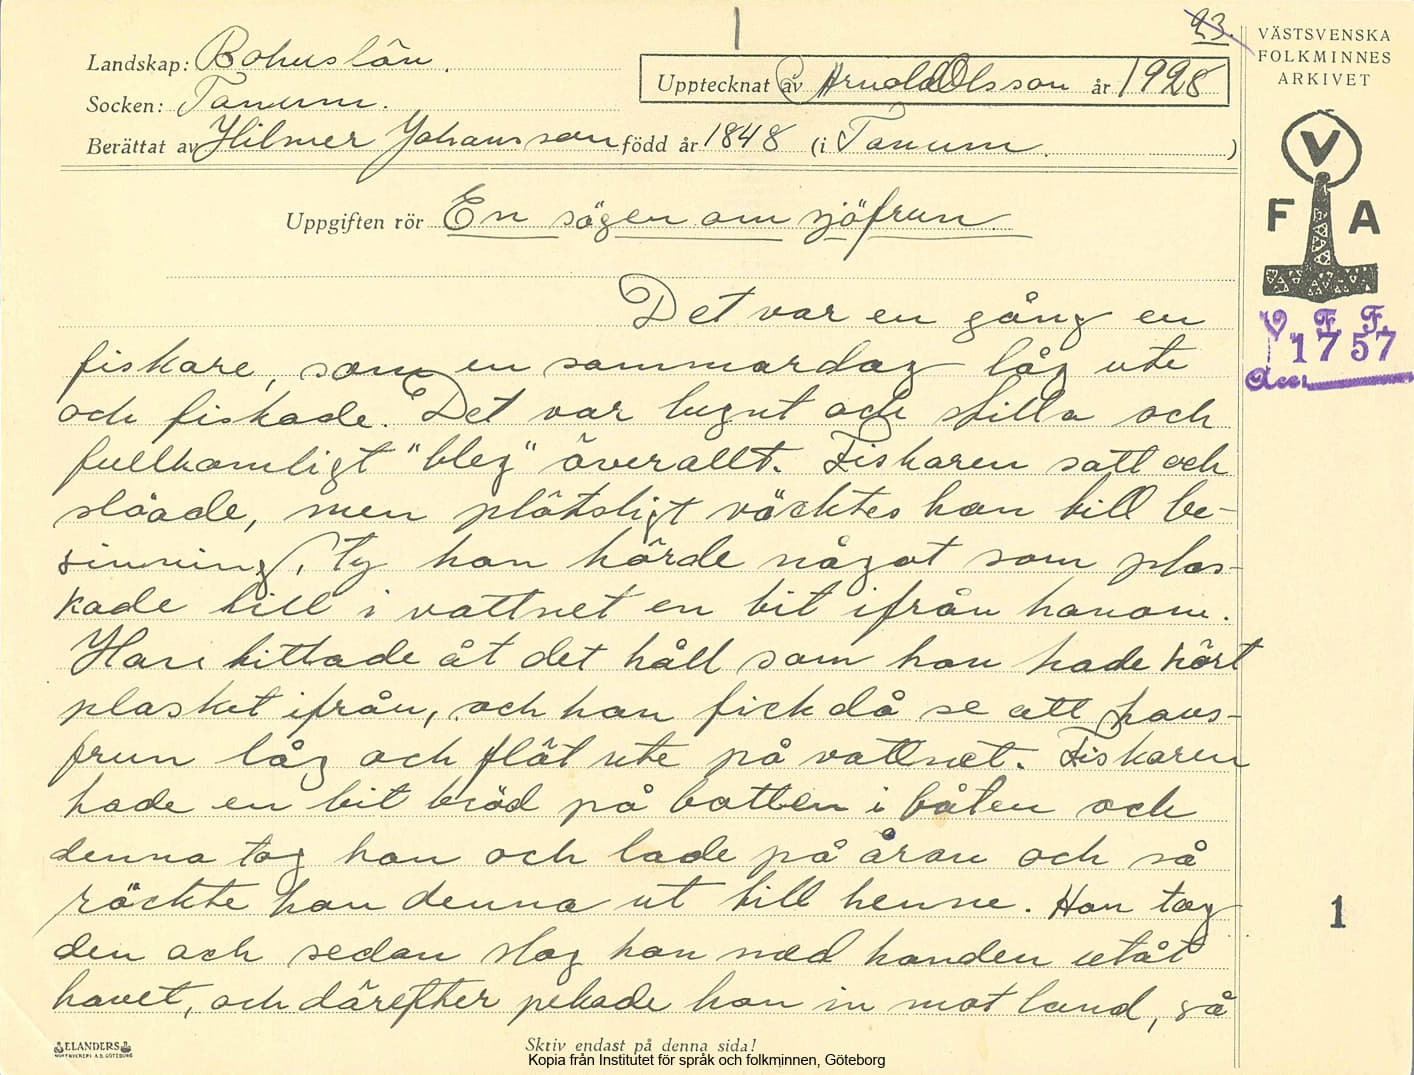 23.
Landskap: Bohuslän.
Upptecknat av Arnold Olsson år 1928
Socken: Tanum.
Berättat av Hilmer Johansson född år 1848 (i Tanum. )
Uppgiften rör En sägen om sjöfrun.
Det var en gång en
fiskare, som en sommardag låg ute
och fiskade. Det var lugnt och stilla och
fullkomligt "bleg" överallt. Fiskaren satt och
slöade, men plötsligt väcktes han till be-
sinning, ty han hörde något som plas-
kade till i vattnet en bit ifrån honom.
Han tittade åt det håll som han hade hört
plasket ifrån, och han fick då se att havs-
frun låg och flöt ute på vattnet. Fiskaren
hade en bit bröd på botten i båten och
denna tog han och lade på åran och så
räckte han denna ut till henne. Hon tog
den och sedan slog hon med handen utåt
havet, och därefter pekade hon in mot land, så
VÄSTSVENSKA
FOLKMINNES
ARKIVET
V
F A
V. F. F.
1757
Acc.
1
ELANDERS
Skriv endast på denna sida!
Kopia från Institutet för språk och folkminnen, Göteborg